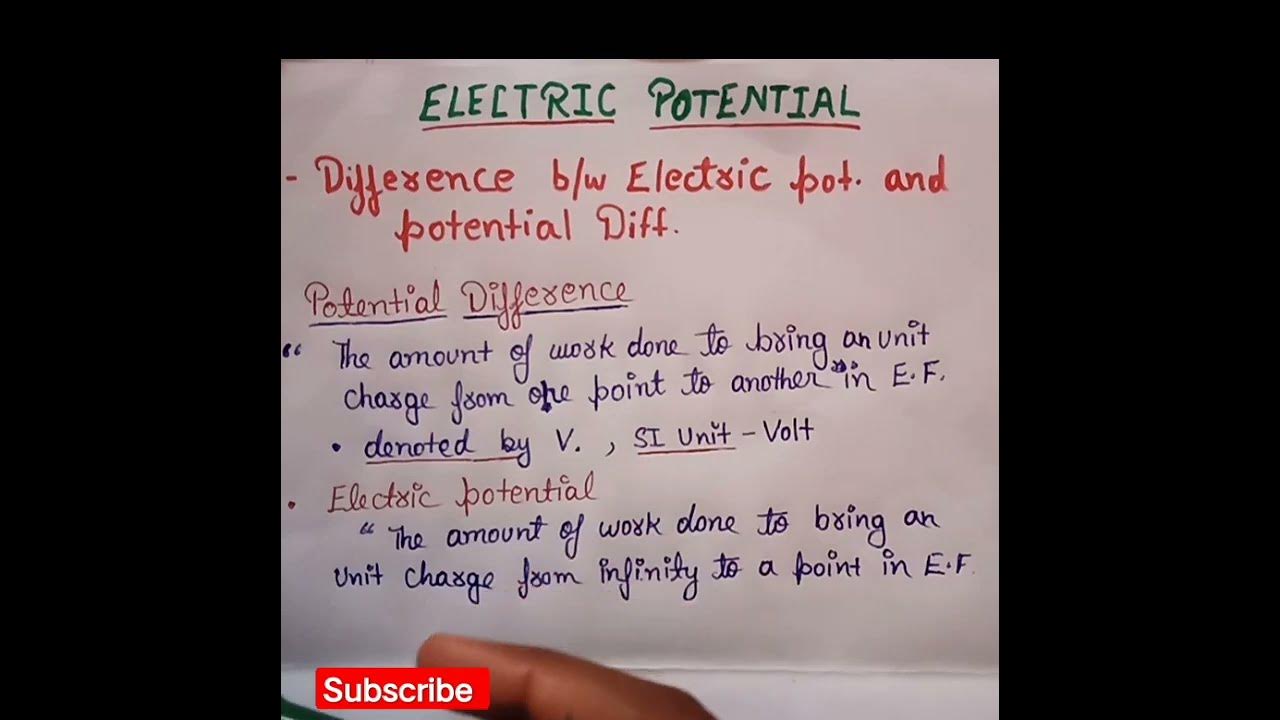 ELECTRIC POTENTIAL
- Difference b/w Electric pot. and
potential Diff.
Potential Difference
“ The amount of work done to bring an unit
charge from one point to another in E.F.
• denoted by V. , SI Unit - Volt
• Electric potential
“ The amount of work done to bring an
unit charge from infinity to a point in E.F.
Subscribe